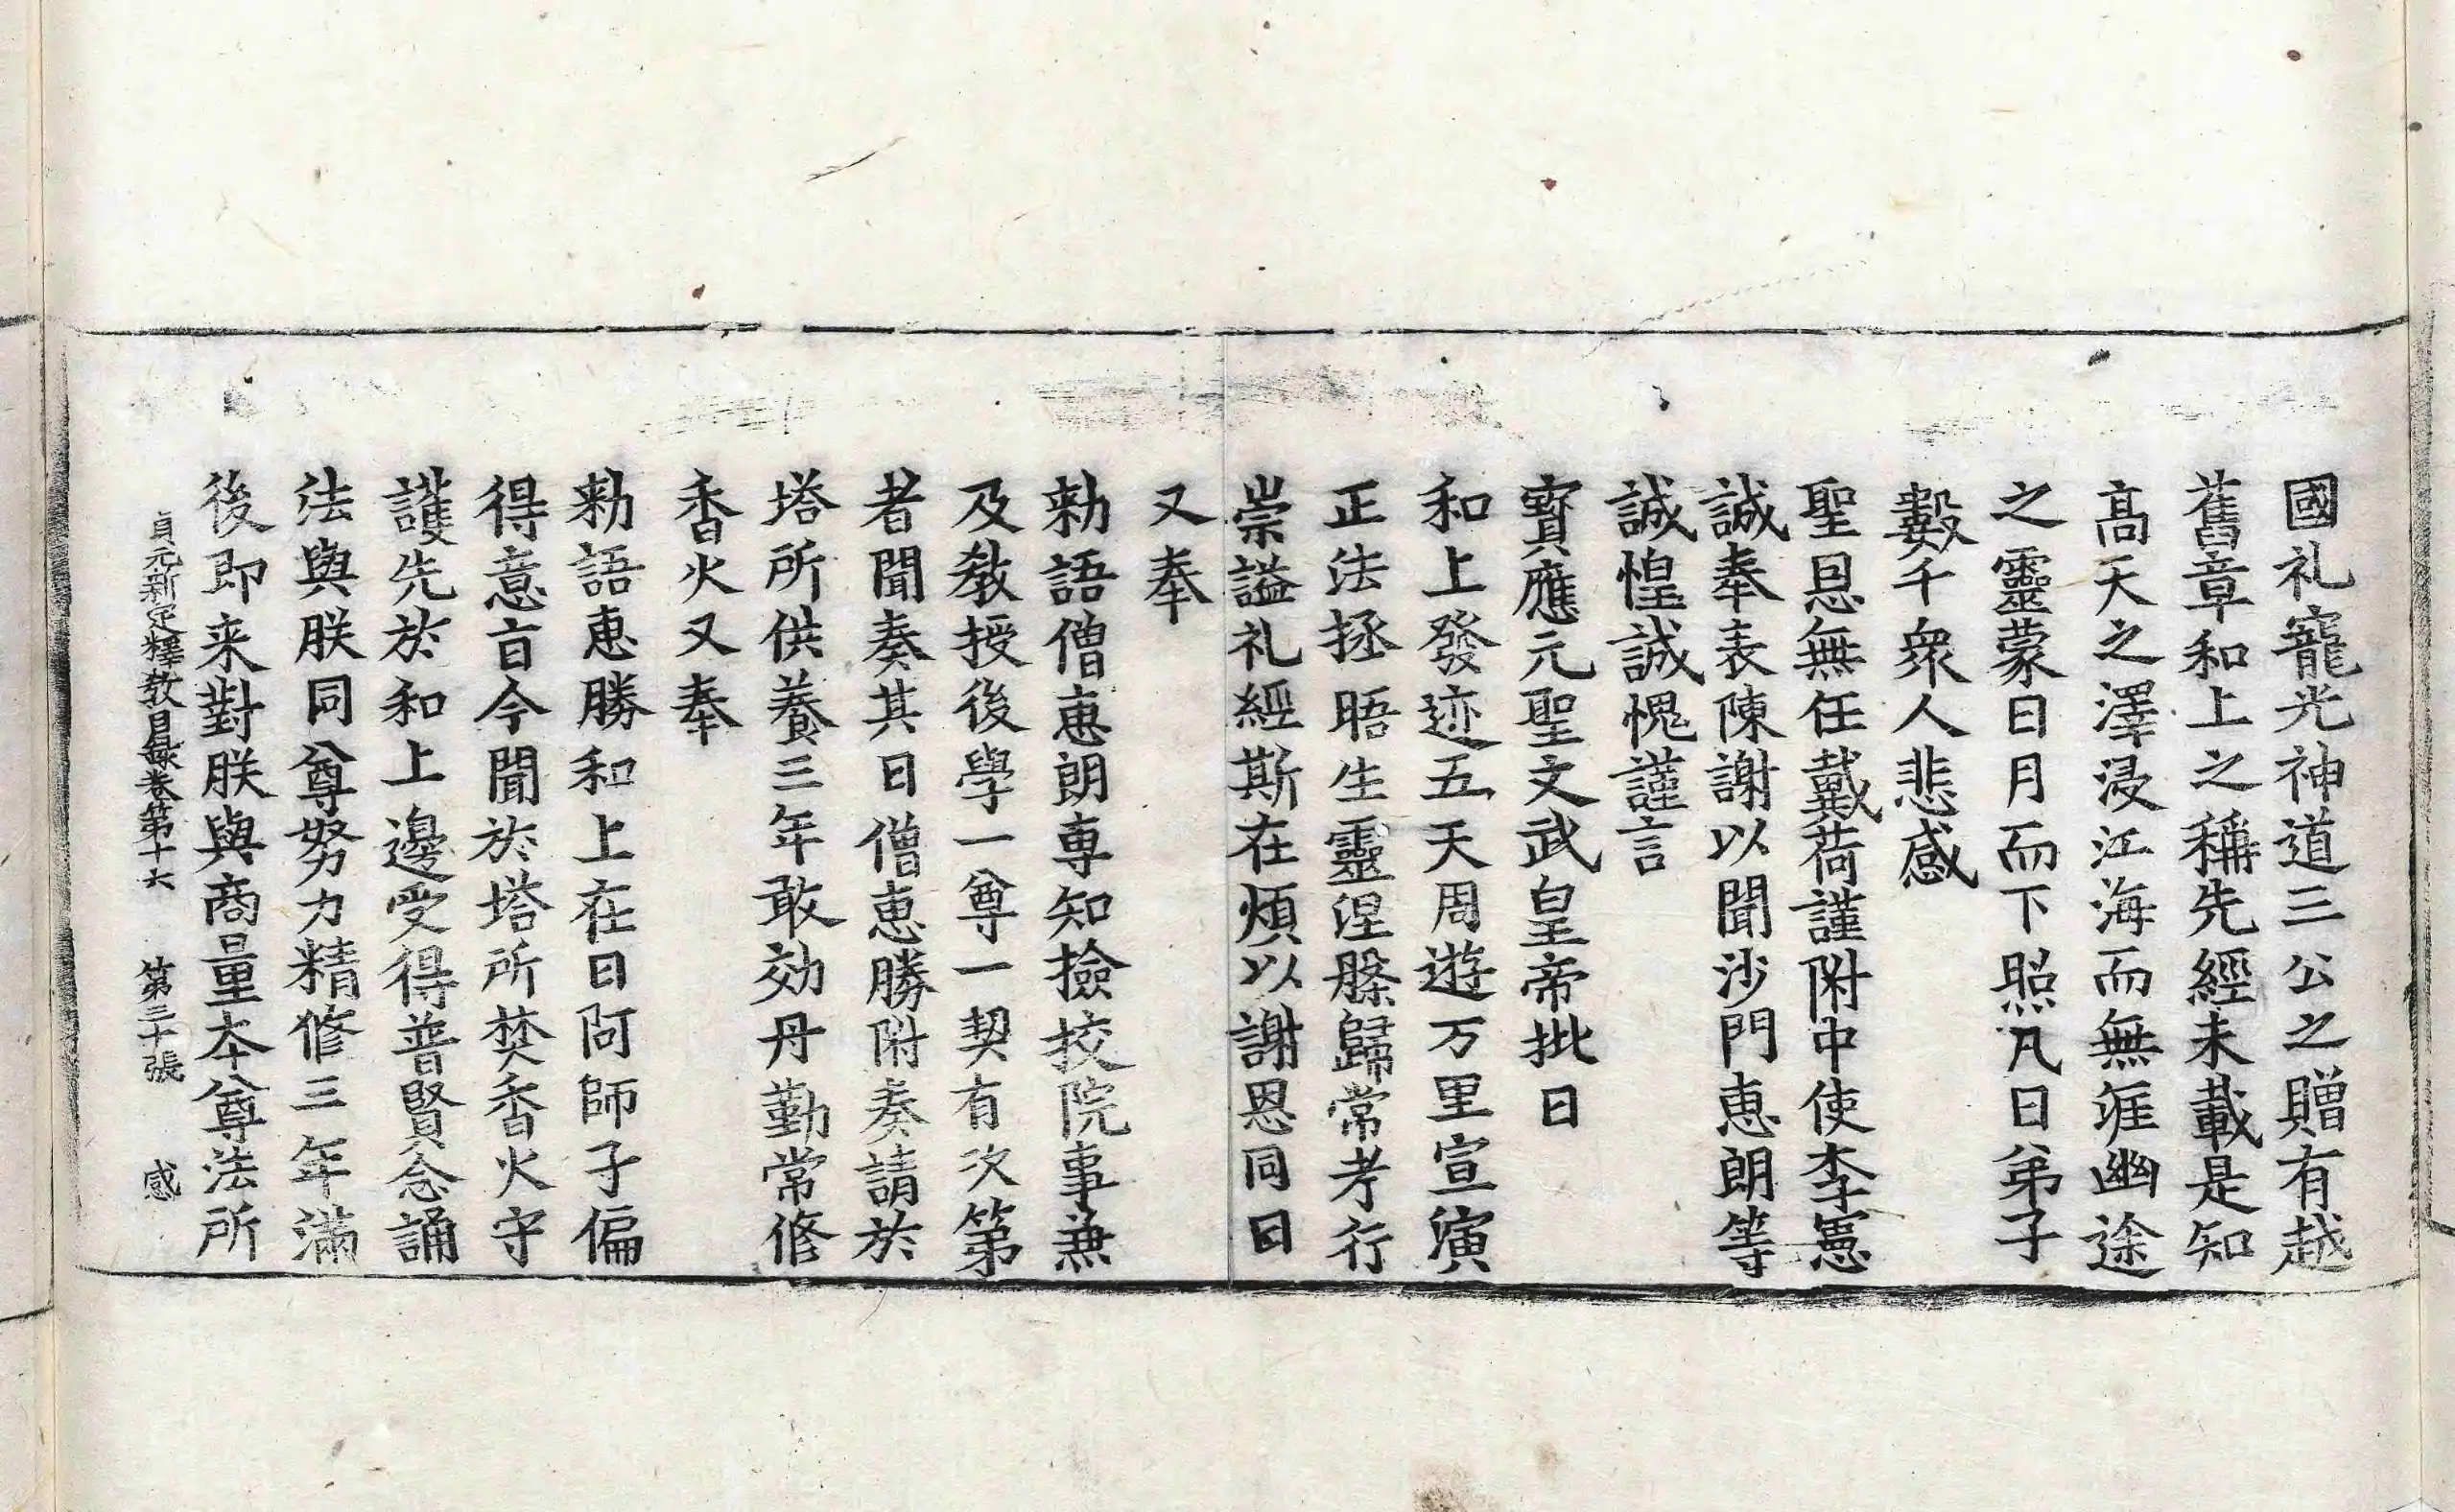 國礼寵光神道三公之贈有越
舊章和上之稱先經未載是知
髙天之澤浸江海而無涯幽途
之靈蒙日月而下照凡曰弟子
數千衆人悲感
聖恩無任戴荷謹附中使李憲
誠奉表陳謝以聞沙門惠朗等
誠惶誠愧謹言
寳應元聖文武皇帝批曰
和上發迹五天周遊万里宣演
正法拯晤生靈涅槃歸常考行
崇謚礼經斯在煩以謝恩同曰
又奉
勑語僧惠朗專知撿挍院事兼
及教授後學一尊一契有次第
者聞奏其日僧惠勝附奏請於
塔所供養三年敢効丹勤常修
香火又奉
勑語惠勝和上在日阿師子偏
得意旨今聞於塔所焚香火守
護先於和上邊受得普賢念誦
法與朕同尊努力精修三年滿
後即来對朕與商量本尊法所
貞元新定釋教目録卷第十六 第三十張 感